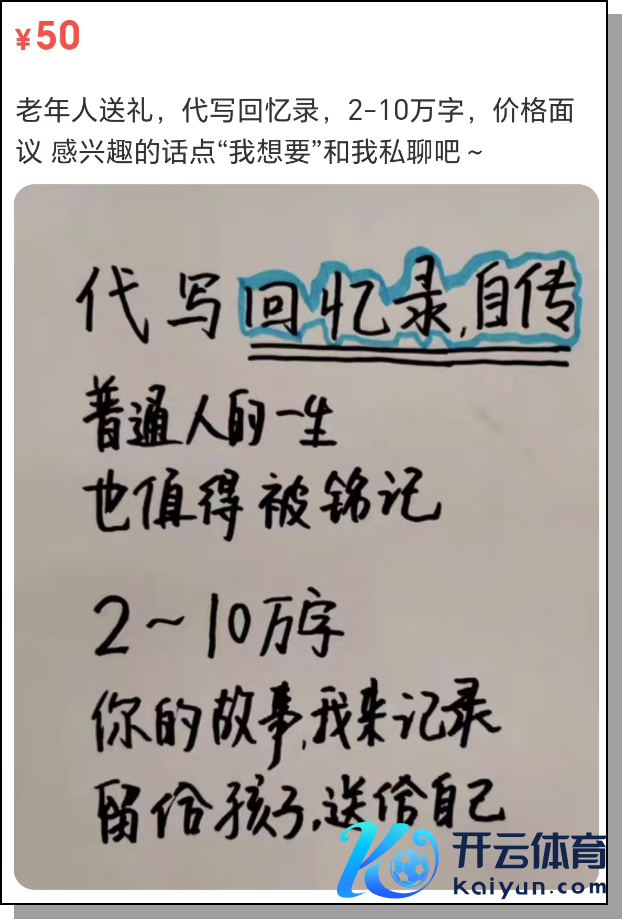 ¥50
老年人送礼，代写回忆录，2-10万字，价格面
议 感兴趣的话点“我想要”和我私聊吧～
代写回忆录,自传
普通人的一生
也值得被铭记
2~10万字
你的故事,我来记录
留给孩子,送给自己
开云体育
kaiyun.com